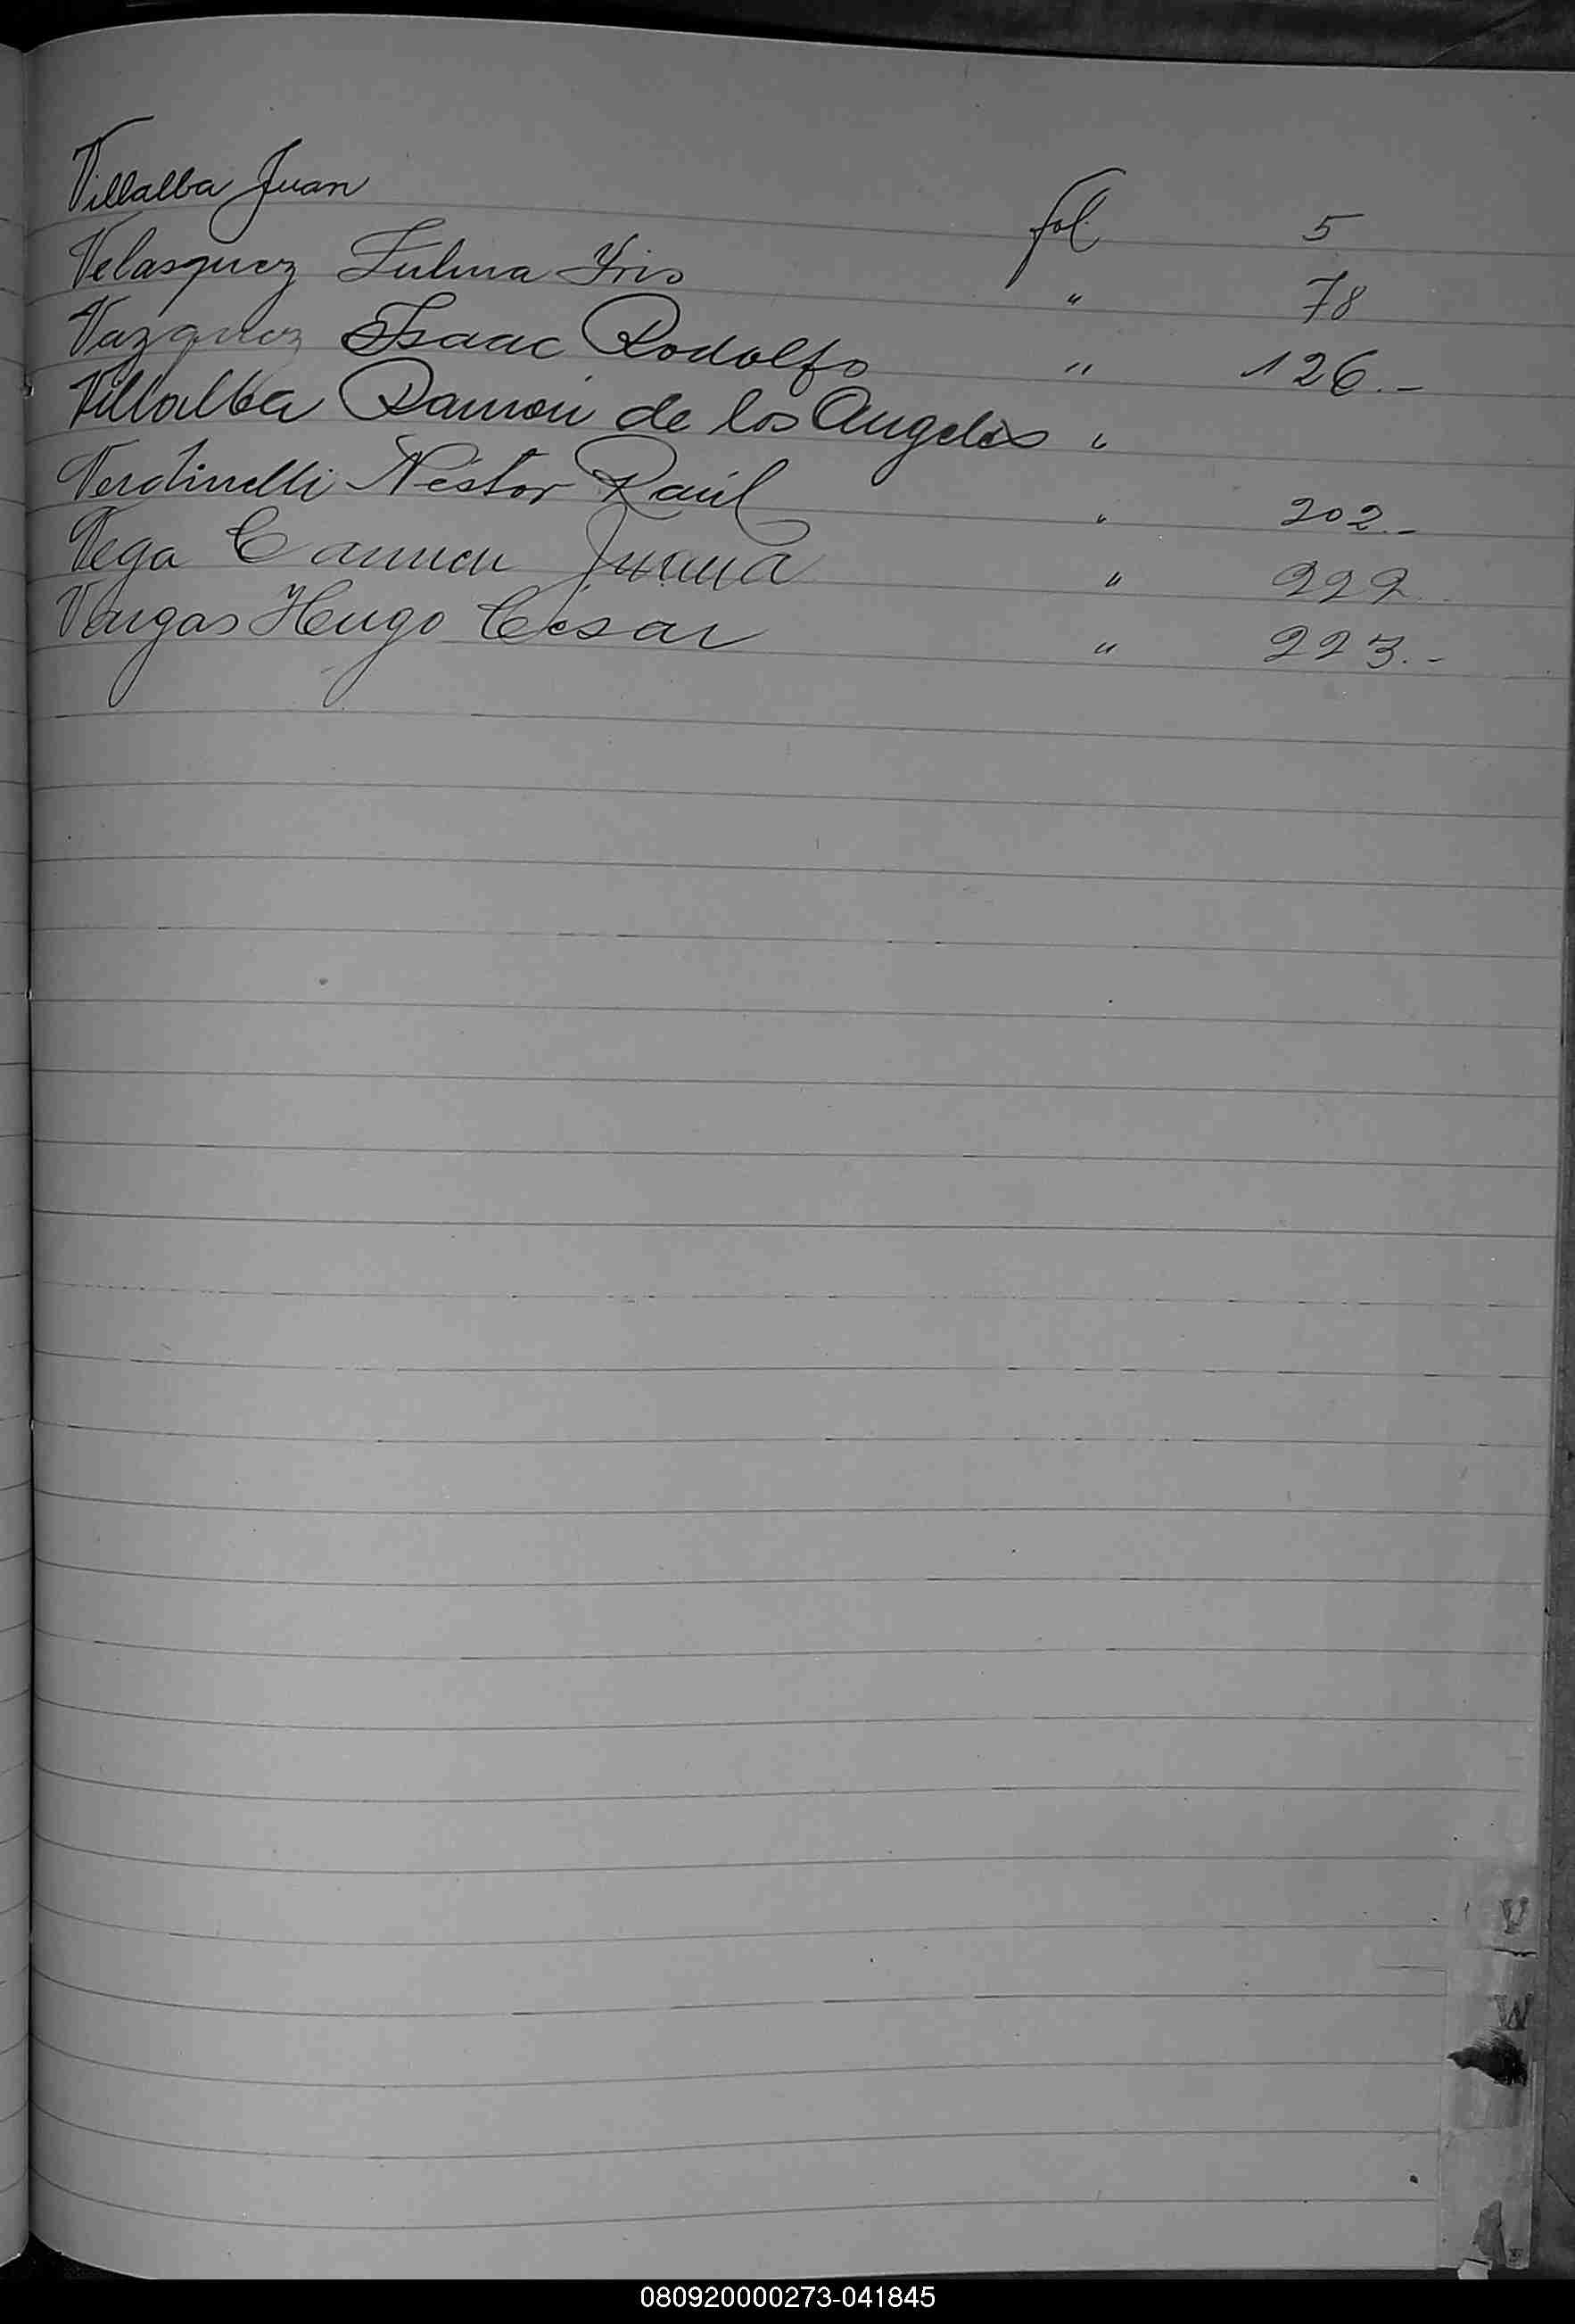 Villalba Juan fol. 5
Velasquez Sulma Yris " 78
Vazquez Isaac Rodolfo " 126.-
Villalba Ramón de los Angeles "
Verdinelli Néstor Raúl " 202.-
Vega Carmen Juana " 222
Vargas Hugo César " 223.-
V
W
080920000273-041845